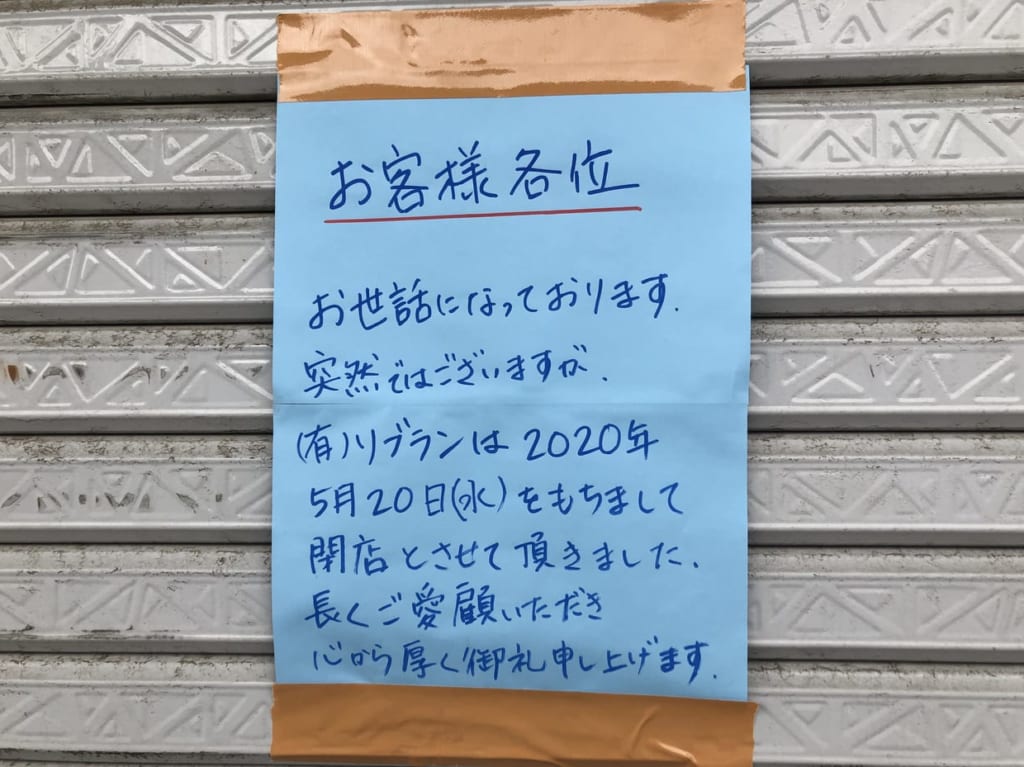 お客様各位
お世話になっております.
突然ではございますが、
(有)リブランは2020年
5月20日(水)をもちまして
閉店とさせて頂きました、
長くご愛顧いただき
心から厚く御礼申し上げます.